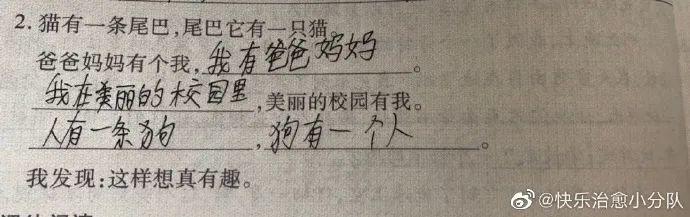 2. 猫有一条尾巴,尾巴它有一只猫
爸爸妈妈有个我,我有爸爸妈妈。
我在美丽的校园里,美丽的校园有我。
人有一条狗,狗有一个人。
我发现:这样想真有趣。
@快乐治愈小分队